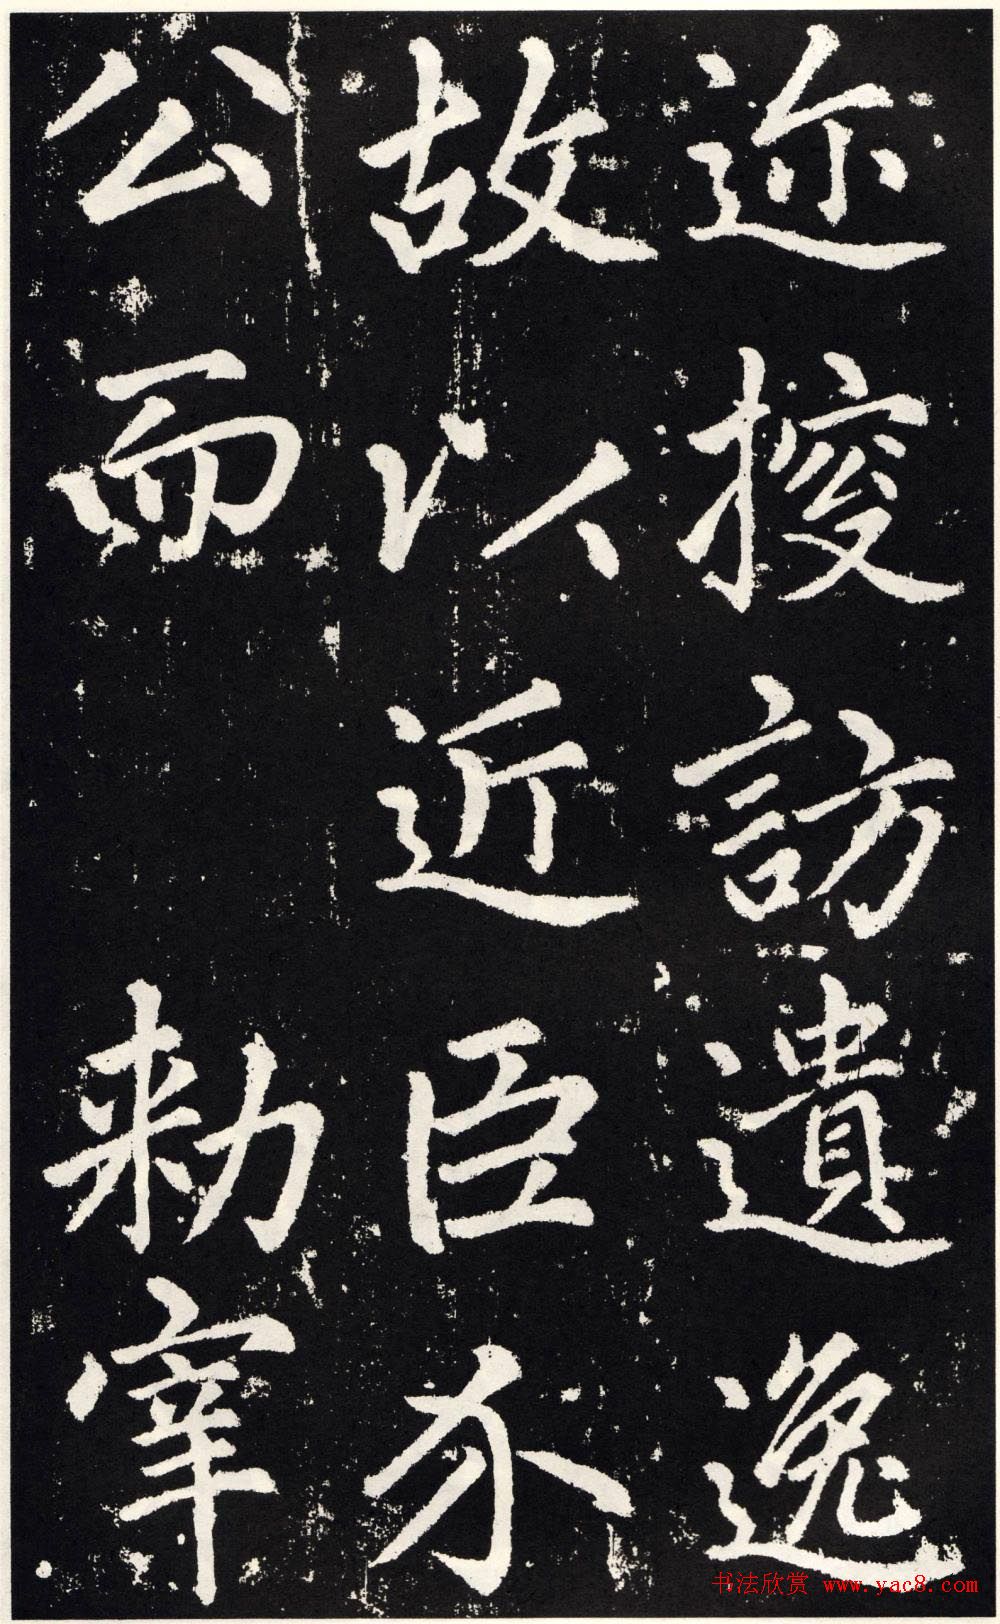 迩搜訪遺逸
故以近臣
公而勑宰
书法欣赏 www.yac8.com